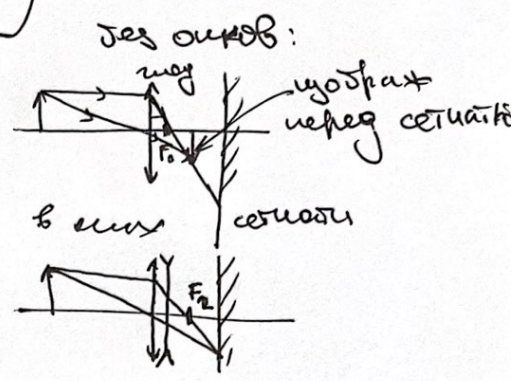 без очков:
изображ
перед сетчатк
F₀
в очках
сетчатк
F₂